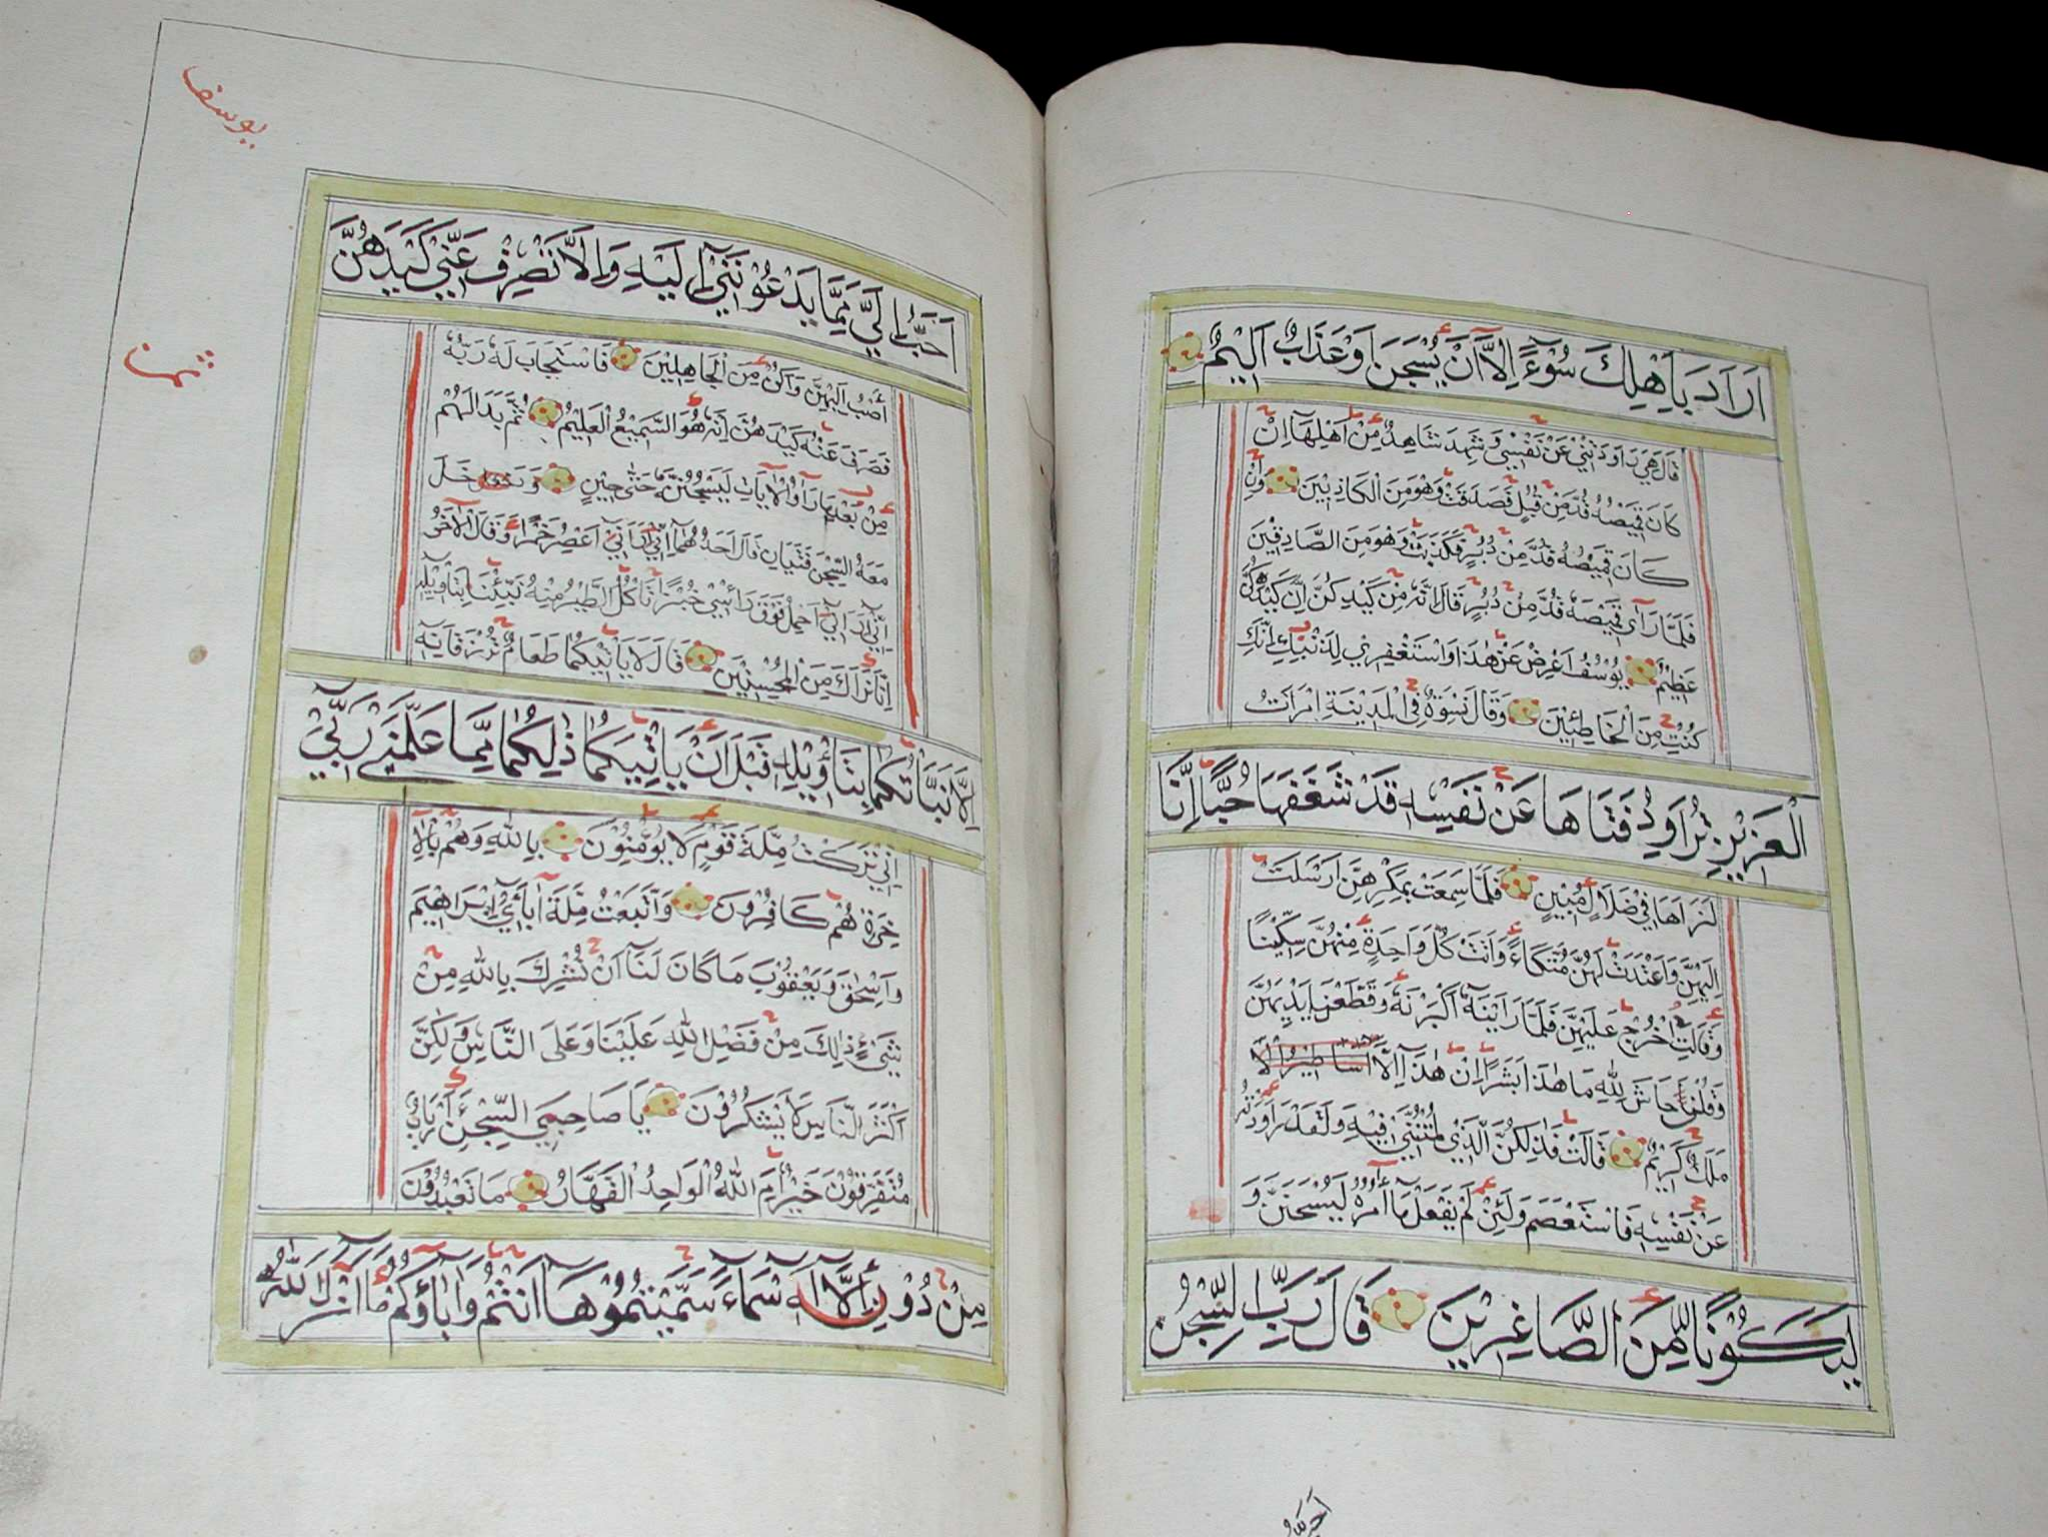 اَرَادَ بِاَهْلِكَ سُوْٓءًا اِلَّٓا اَنْ يُسْجَنَ اَوْعَذَابٌ اَلِيْمٌ
قَالَ هِيَ رَاوَدَتْنِيْ عَنْ نَفْسِيْ وَشَهِدَ شَاهِدٌ مِنْ اَهْلِهَآ اِنْ
كَانَ قَمِيْصُهُ قُدَّ مِنْ قُبُلٍ فَصَدَقَتْ وَهُوَ مِنَ الْكَاذِبِيْنَ وَاِنْ
كَانَ قَمِيْصُهُ قُدَّ مِنْ دُبُرٍ فَكَذَبَتْ وَهُوَ مِنَ الصَّادِقِيْنَ
فَلَمَّا رَآٰى قَمِيْصَهُ قُدَّ مِنْ دُبُرٍ قَالَ اِنَّهُ مِنْ كَيْدِكُنَّ اِنَّ كَيْدَكُنَّ
عَظِيْمٌ يُوْسُفُ اَعْرِضْ عَنْ هٰذَا وَاسْتَغْفِرِيْ لِذَنْبِكِ اِنَّكِ
كُنْتِ مِنَ الْخَاطِئِيْنَ وَقَالَ نِسْوَةٌ فِى الْمَدِيْنَةِ امْرَاَتُ
الْعَزِيْزِ تُرَاوِدُ فَتَاهَا عَنْ نَفْسِهٖ قَدْ شَغَفَهَا حُبًّا اِنَّا
لَنَرَاهَا فِيْ ضَلَالٍ مُبِيْنٍ فَلَمَّا سَمِعَتْ بِمَكْرِهِنَّ اَرْسَلَتْ
اِلَيْهِنَّ وَاَعْتَدَتْ لَهُنَّ مُتَّكَاءً وَاٰتَتْ كُلَّ وَاحِدَةٍ مِنْهُنَّ سِكِّيْنًا
وَقَالَتِ اخْرُجْ عَلَيْهِنَّ فَلَمَّا رَاَيْنَهُ اَكْبَرْنَهُ وَقَطَّعْنَ اَيْدِيَهُنَّ
وَقُلْنَ حَاشَ لِلّٰهِ مَا هٰذَا بَشَرًا اِنْ هٰذَآ اِلَّا اَسَاطِيْرُ الْاَ
مَلَكٌ كَرِيْمٌ قَالَتْ فَذٰلِكُنَّ الَّذِيْ لُمْتُنَّنِيْ فِيْهِ وَلَقَدْ رَاوَدْتُهُ
عَنْ نَفْسِهٖ فَاسْتَعْصَمَ وَلَئِنْ لَمْ يَفْعَلْ مَآ اٰمُرُهُ لَيُسْجَنَنَّ وَ
لَيَكُوْنًا مِنَ الصَّاغِرِيْنَ قَالَ رَبِّ السِّجْنُ
اَحَبُّ
يوسف
ثمن
اَحَبُّ اِلَيَّ مِمَّا يَدْعُوْنَنِيْٓ اِلَيْهِ وَاِلَّا تَصْرِفْ عَنِّيْ كَيْدَهُنَّ
اَصْبُ اِلَيْهِنَّ وَاَكُنْ مِنَ الْجَاهِلِيْنَ فَاسْتَجَابَ لَهُ رَبُّهُ
فَصَرَفَ عَنْهُ كَيْدَهُنَّ اِنَّهُ هُوَ السَّمِيْعُ الْعَلِيْمُ ثُمَّ بَدَا لَهُمْ
مِنْ بَعْدِ مَا رَاَوُا الْاٰيَاتِ لَيَسْجُنُنَّهُ حَتّٰى حِيْنٍ وَدَخَلَ
مَعَهُ السِّجْنَ فَتَيَانِ قَالَ اَحَدُهُمَآ اِنِّيْٓ اَرَانِيْٓ اَعْصِرُ خَمْرًا وَقَالَ الْاٰخَرُ
اِنِّيْٓ اَرَانِيْٓ اَحْمِلُ فَوْقَ رَاْسِيْ خُبْزًا تَاْكُلُ الطَّيْرُ مِنْهُ نَبِّئْنَا بِتَاْوِيْلِهٖ
اِنَّا نَرَاكَ مِنَ الْمُحْسِنِيْنَ قَالَ لَا يَاْتِيْكُمَا طَعَامٌ تُرْزَقَانِهٖ
اِلَّا نَبَّاْتُكُمَا بِتَاْوِيْلِهٖ قَبْلَ اَنْ يَاْتِيَكُمَا ذٰلِكُمَا مِمَّا عَلَّمَنِيْ رَبِّيْ
اِنِّيْ تَرَكْتُ مِلَّةَ قَوْمٍ لَا يُؤْمِنُوْنَ بِاللّٰهِ وَهُمْ بِالْاٰ
خِرَةِ هُمْ كَافِرُوْنَ وَاتَّبَعْتُ مِلَّةَ اٰبَآئِيْٓ اِبْرَاهِيْمَ
وَاِسْحٰقَ وَيَعْقُوْبَ مَا كَانَ لَنَآ اَنْ نُشْرِكَ بِاللّٰهِ مِنْ
شَيْءٍ ذٰلِكَ مِنْ فَضْلِ اللّٰهِ عَلَيْنَا وَعَلَى النَّاسِ وَلٰكِنَّ
اَكْثَرَ النَّاسِ لَا يَشْكُرُوْنَ يَا صَاحِبَيِ السِّجْنِ ءَاَرْبَابٌ
مُتَفَرِّقُوْنَ خَيْرٌ اَمِ اللّٰهُ الْوَاحِدُ الْقَهَّارُ مَا تَعْبُدُوْنَ
مِنْ دُوْنِهٖٓ اِلَّٓا اَسْمَآءً سَمَّيْتُمُوْهَآ اَنْتُمْ وَاٰبَآؤُكُمْ مَآ اَنْزَلَ اللّٰهُ